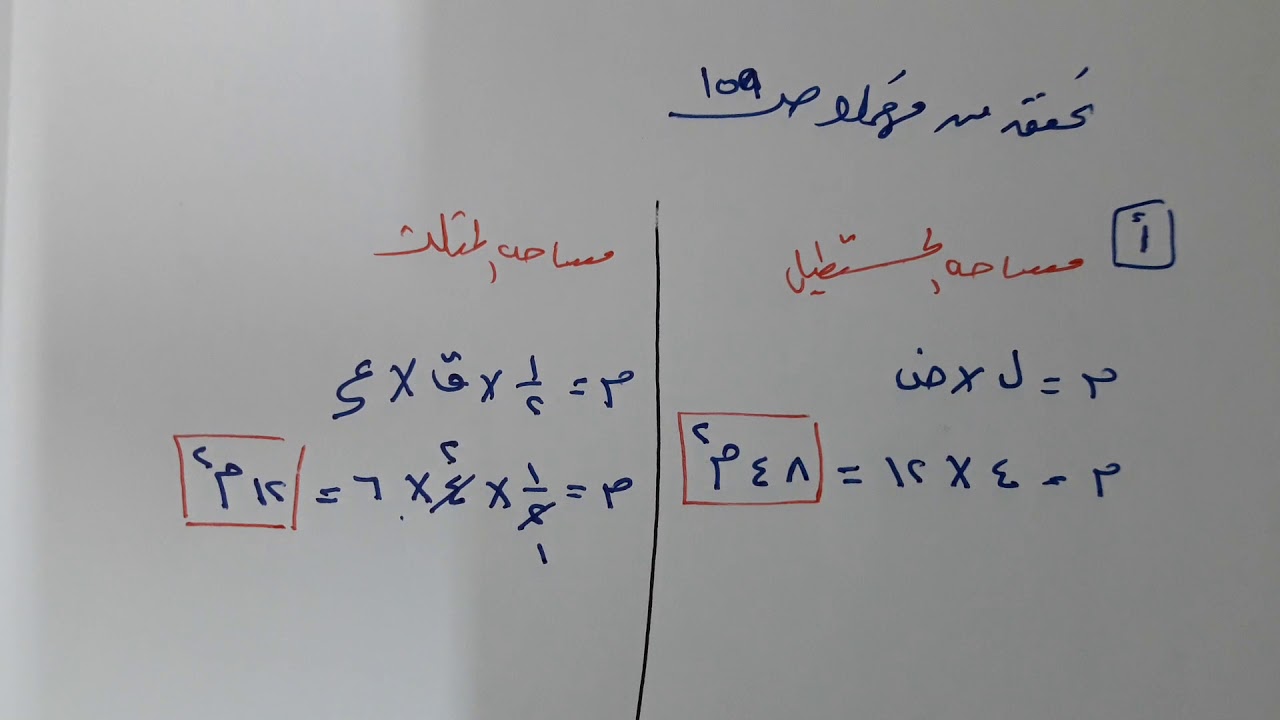 تحقق من فهمك ص ١٥٩
أ
مساحة المستطيل
م = ل × ض
م = ٤ × ١٢ = ٤٨ م٢
مساحة المثلث
م = ١/٢ × ق × ع
م = ١/٢ × ٤ × ٦ = ١٢ م٢
٢
١